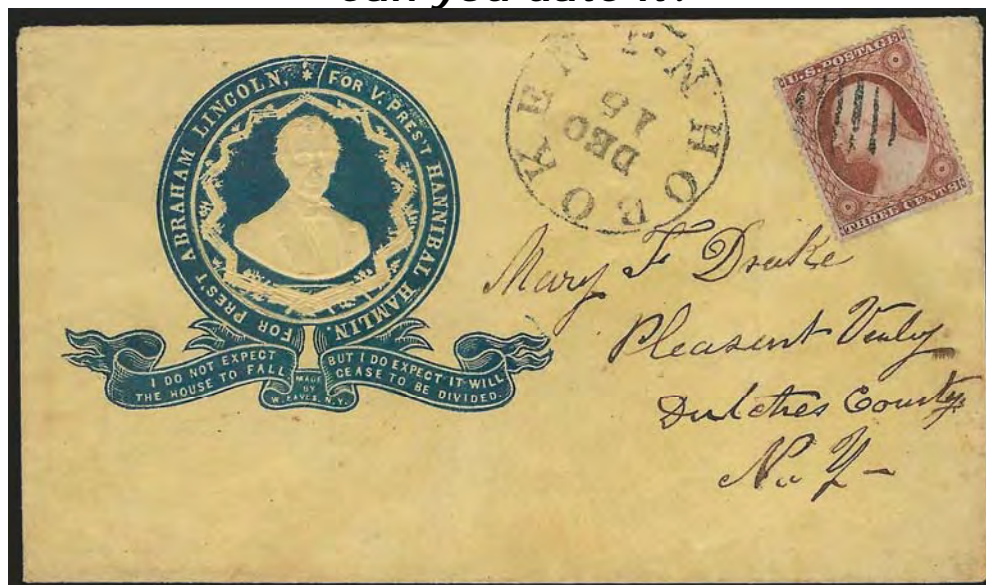 can you date it?
FOR PRES'T ABRAHAM LINCOLN, * FOR V. PRES'T HANNIBAL HAMLIN.
I DO NOT EXPECT
THE HOUSE TO FALL
MADE
BY
W. EAVES, N.Y.
BUT I DO EXPECT IT WILL
CEASE TO BE DIVIDED.
HOBOKEN N.J.
DEC
15
U.S. POSTAGE
THREE CENTS
Mary F Drake
Pleasent Vealy
Dutches County
N. Y -